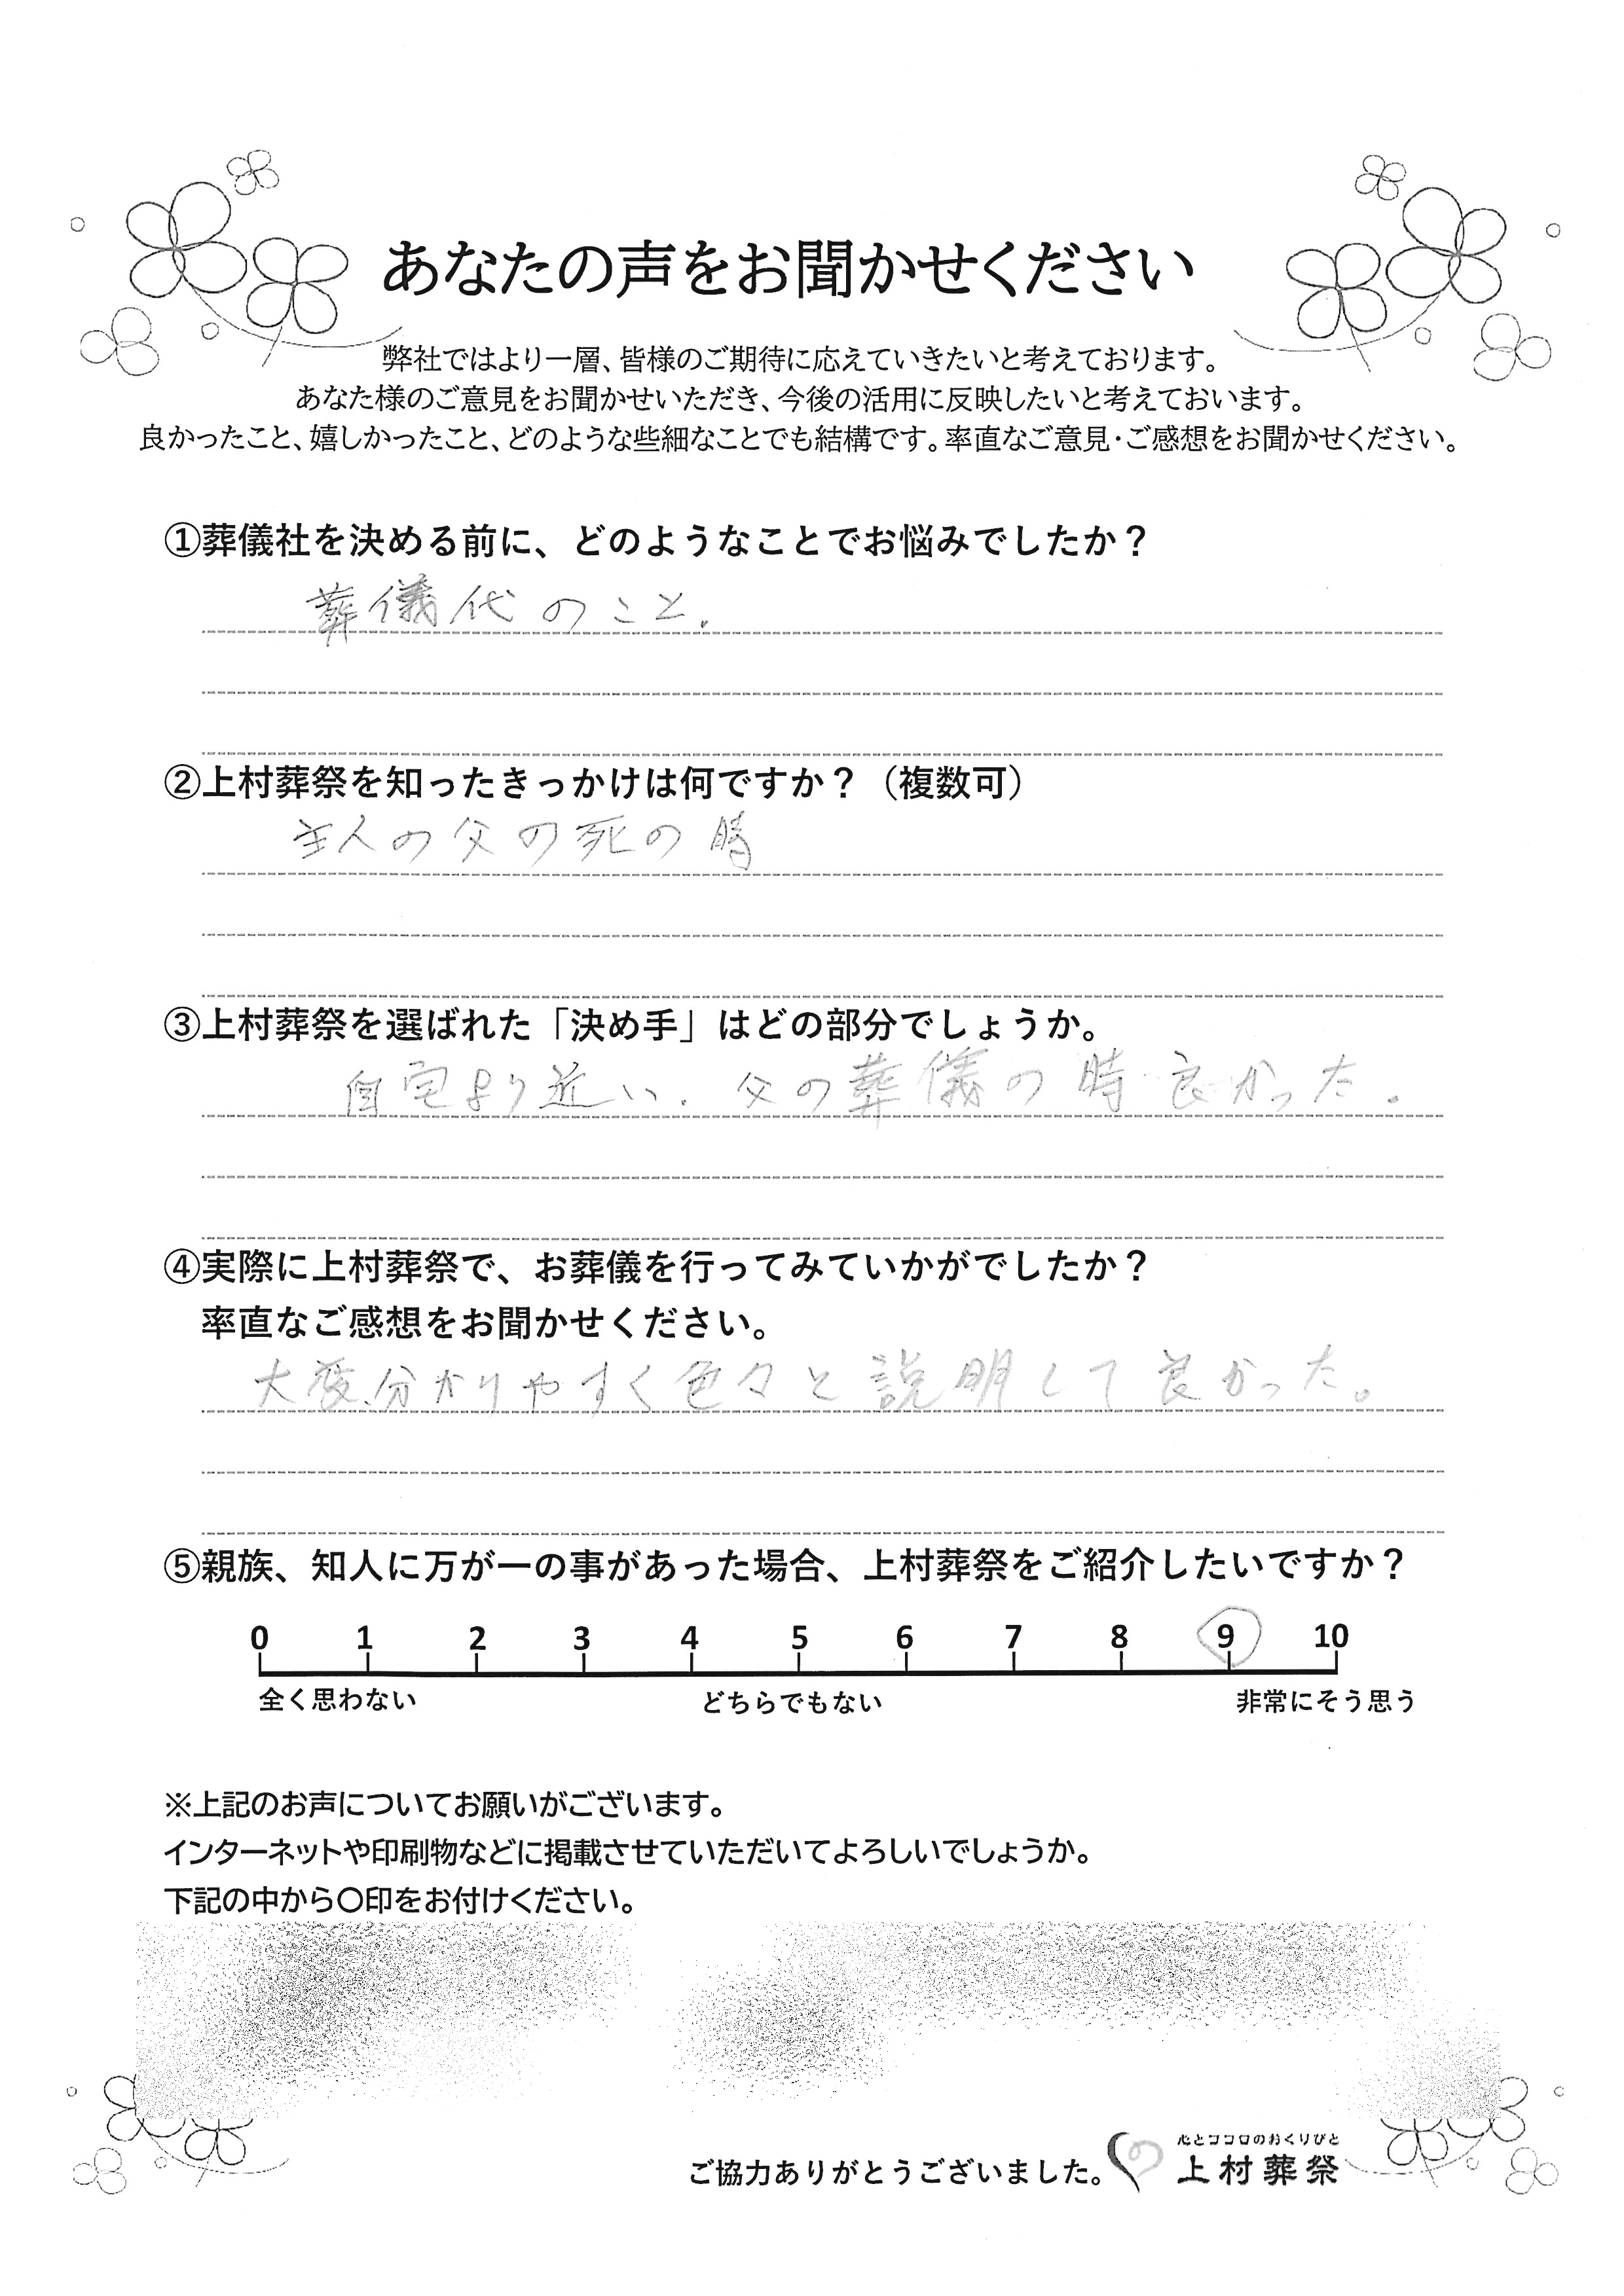 あなたの声をお聞かせください
弊社ではより一層、皆様のご期待に応えていきたいと考えております。
あなた様のご意見をお聞かせいただき、今後の活用に反映したいと考えておいます。
良かったこと、嬉しかったこと、どのような些細なことでも結構です。率直なご意見・ご感想をお聞かせください。
①葬儀社を決める前に、どのようなことでお悩みでしたか？
葬儀代のこと.
②上村葬祭を知ったきっかけは何ですか？（複数可）
主人の父の死の時
③上村葬祭を選ばれた「決め手」はどの部分でしょうか。
自宅より近い. 父の葬儀の時良かった.
④実際に上村葬祭で、お葬儀を行ってみていかがでしたか？
率直なご感想をお聞かせください。
大変分かりやすく色々と説明して良かった。
⑤親族、知人に万が一の事があった場合、上村葬祭をご紹介したいですか？
0 1 2 3 4 5 6 7 8 9 10
全く思わない どちらでもない 非常にそう思う
※上記のお声についてお願いがございます。
インターネットや印刷物などに掲載させていただいてよろしいでしょうか。
下記の中から〇印をお付けください。
心とココロのおくりびと
ご協力ありがとうございました。 上村葬祭